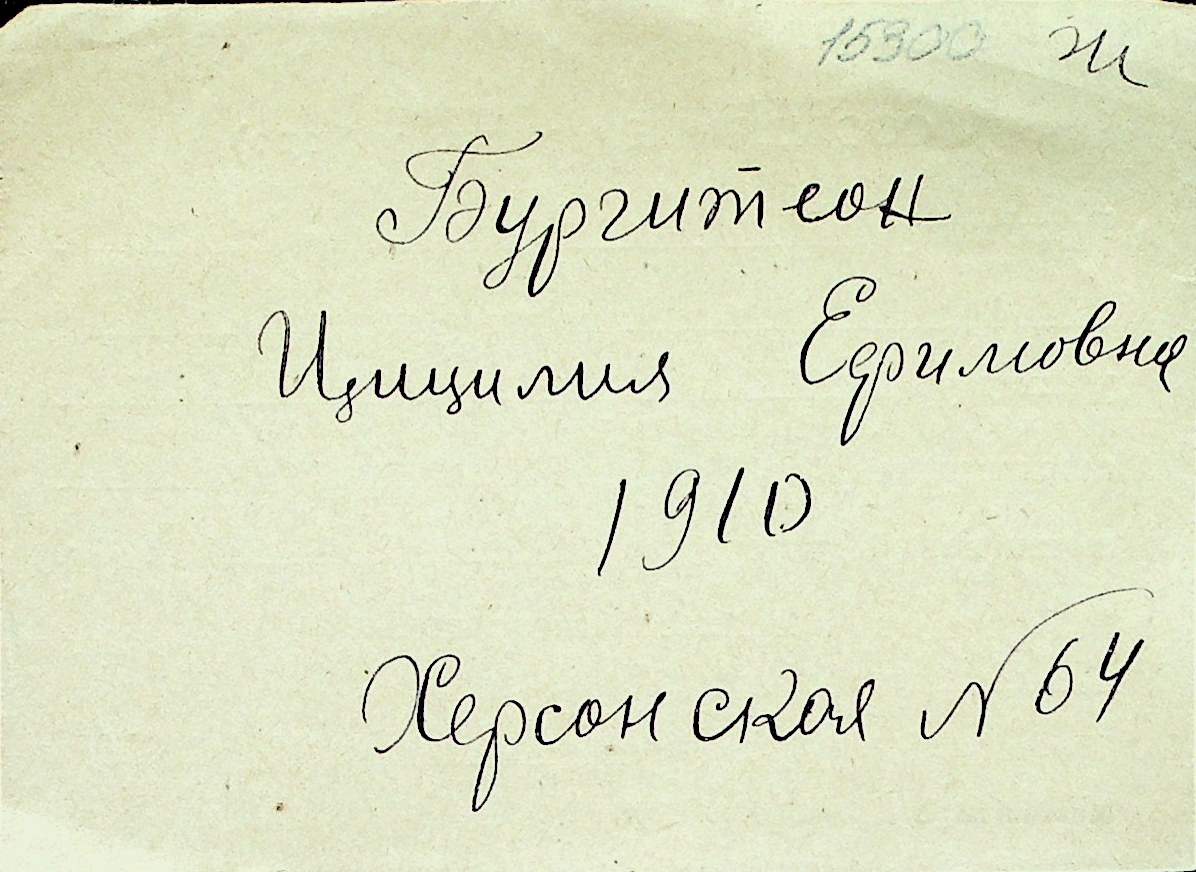 15300 Ж
Бургитеон
Цицилия Ефимовна
1910
Херсонская № 64